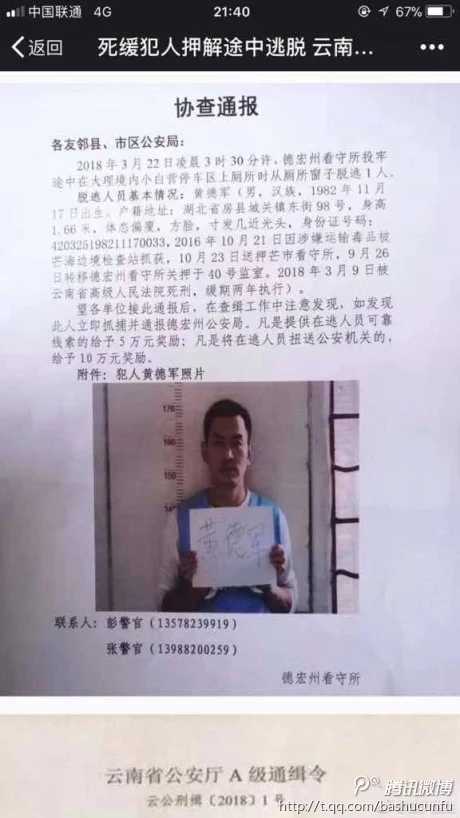 中国联通 4G 21:40 67%
返回 死缓犯人押解途中逃脱 云南...
协查通报
各友邻县、市区公安局:
2018年3月22日凌晨3时30分许,德宏州看守所投牢
途中在大理境内小白营停车区上厕所时从厕所窗子脱逃1人。
脱逃人员基本情况:黄德军(男,汉族,1982年11月
17日出生,户籍地址:湖北省房县城关镇东街98号,身高
1.66米,体态偏瘦,方脸,寸发几近光头,身份证号码:
420325198211170033,2016年10月21日因涉嫌运输毒品被
芒海边境检查站抓获,10月23日送押芒市看守所,9月26
日转移德宏州看守所关押于40号监室。2018年3月9日被
云南省高级人民法院死刑,缓期两年执行)。
望各单位接此通报后,在查缉工作中注意发现,如发现
此人立即抓捕并通报德宏州公安局。凡是提供在逃人员可靠
线索的给予5万元奖励;凡是将在逃人员扭送公安机关的,
给予10万元奖励。
附件:犯人黄德军照片
170
160
150
黄德军
联系人:彭警官(13578239919)
张警官(13988200259)
德宏州看守所
云南省公安厅A级通缉令
云公刑缉〔2018〕1号
腾讯微博
http://t.qq.com/bashucunfu